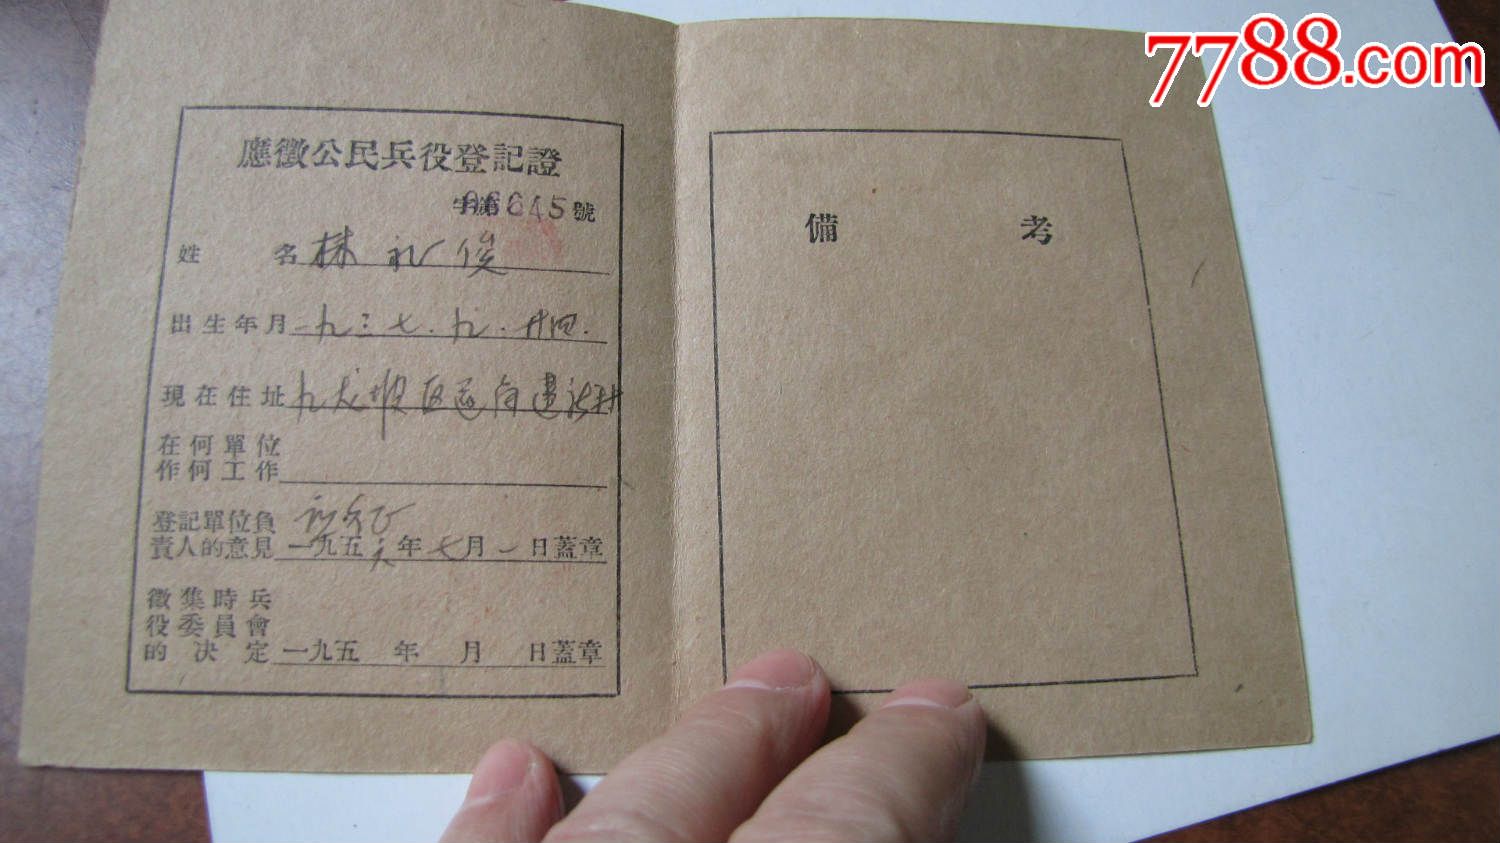 7788.com
應徵公民兵役登記證
字第06645號
姓名 林礼俊
出生年月 一九三七.九.廿四.
現在住址 九龙坡区
在何單位
作何工作
登記單位負
責人的意見 一九五六年七月一日蓋章
徵集時兵
役委員會
的決定 一九五 年 月 日蓋章
備考